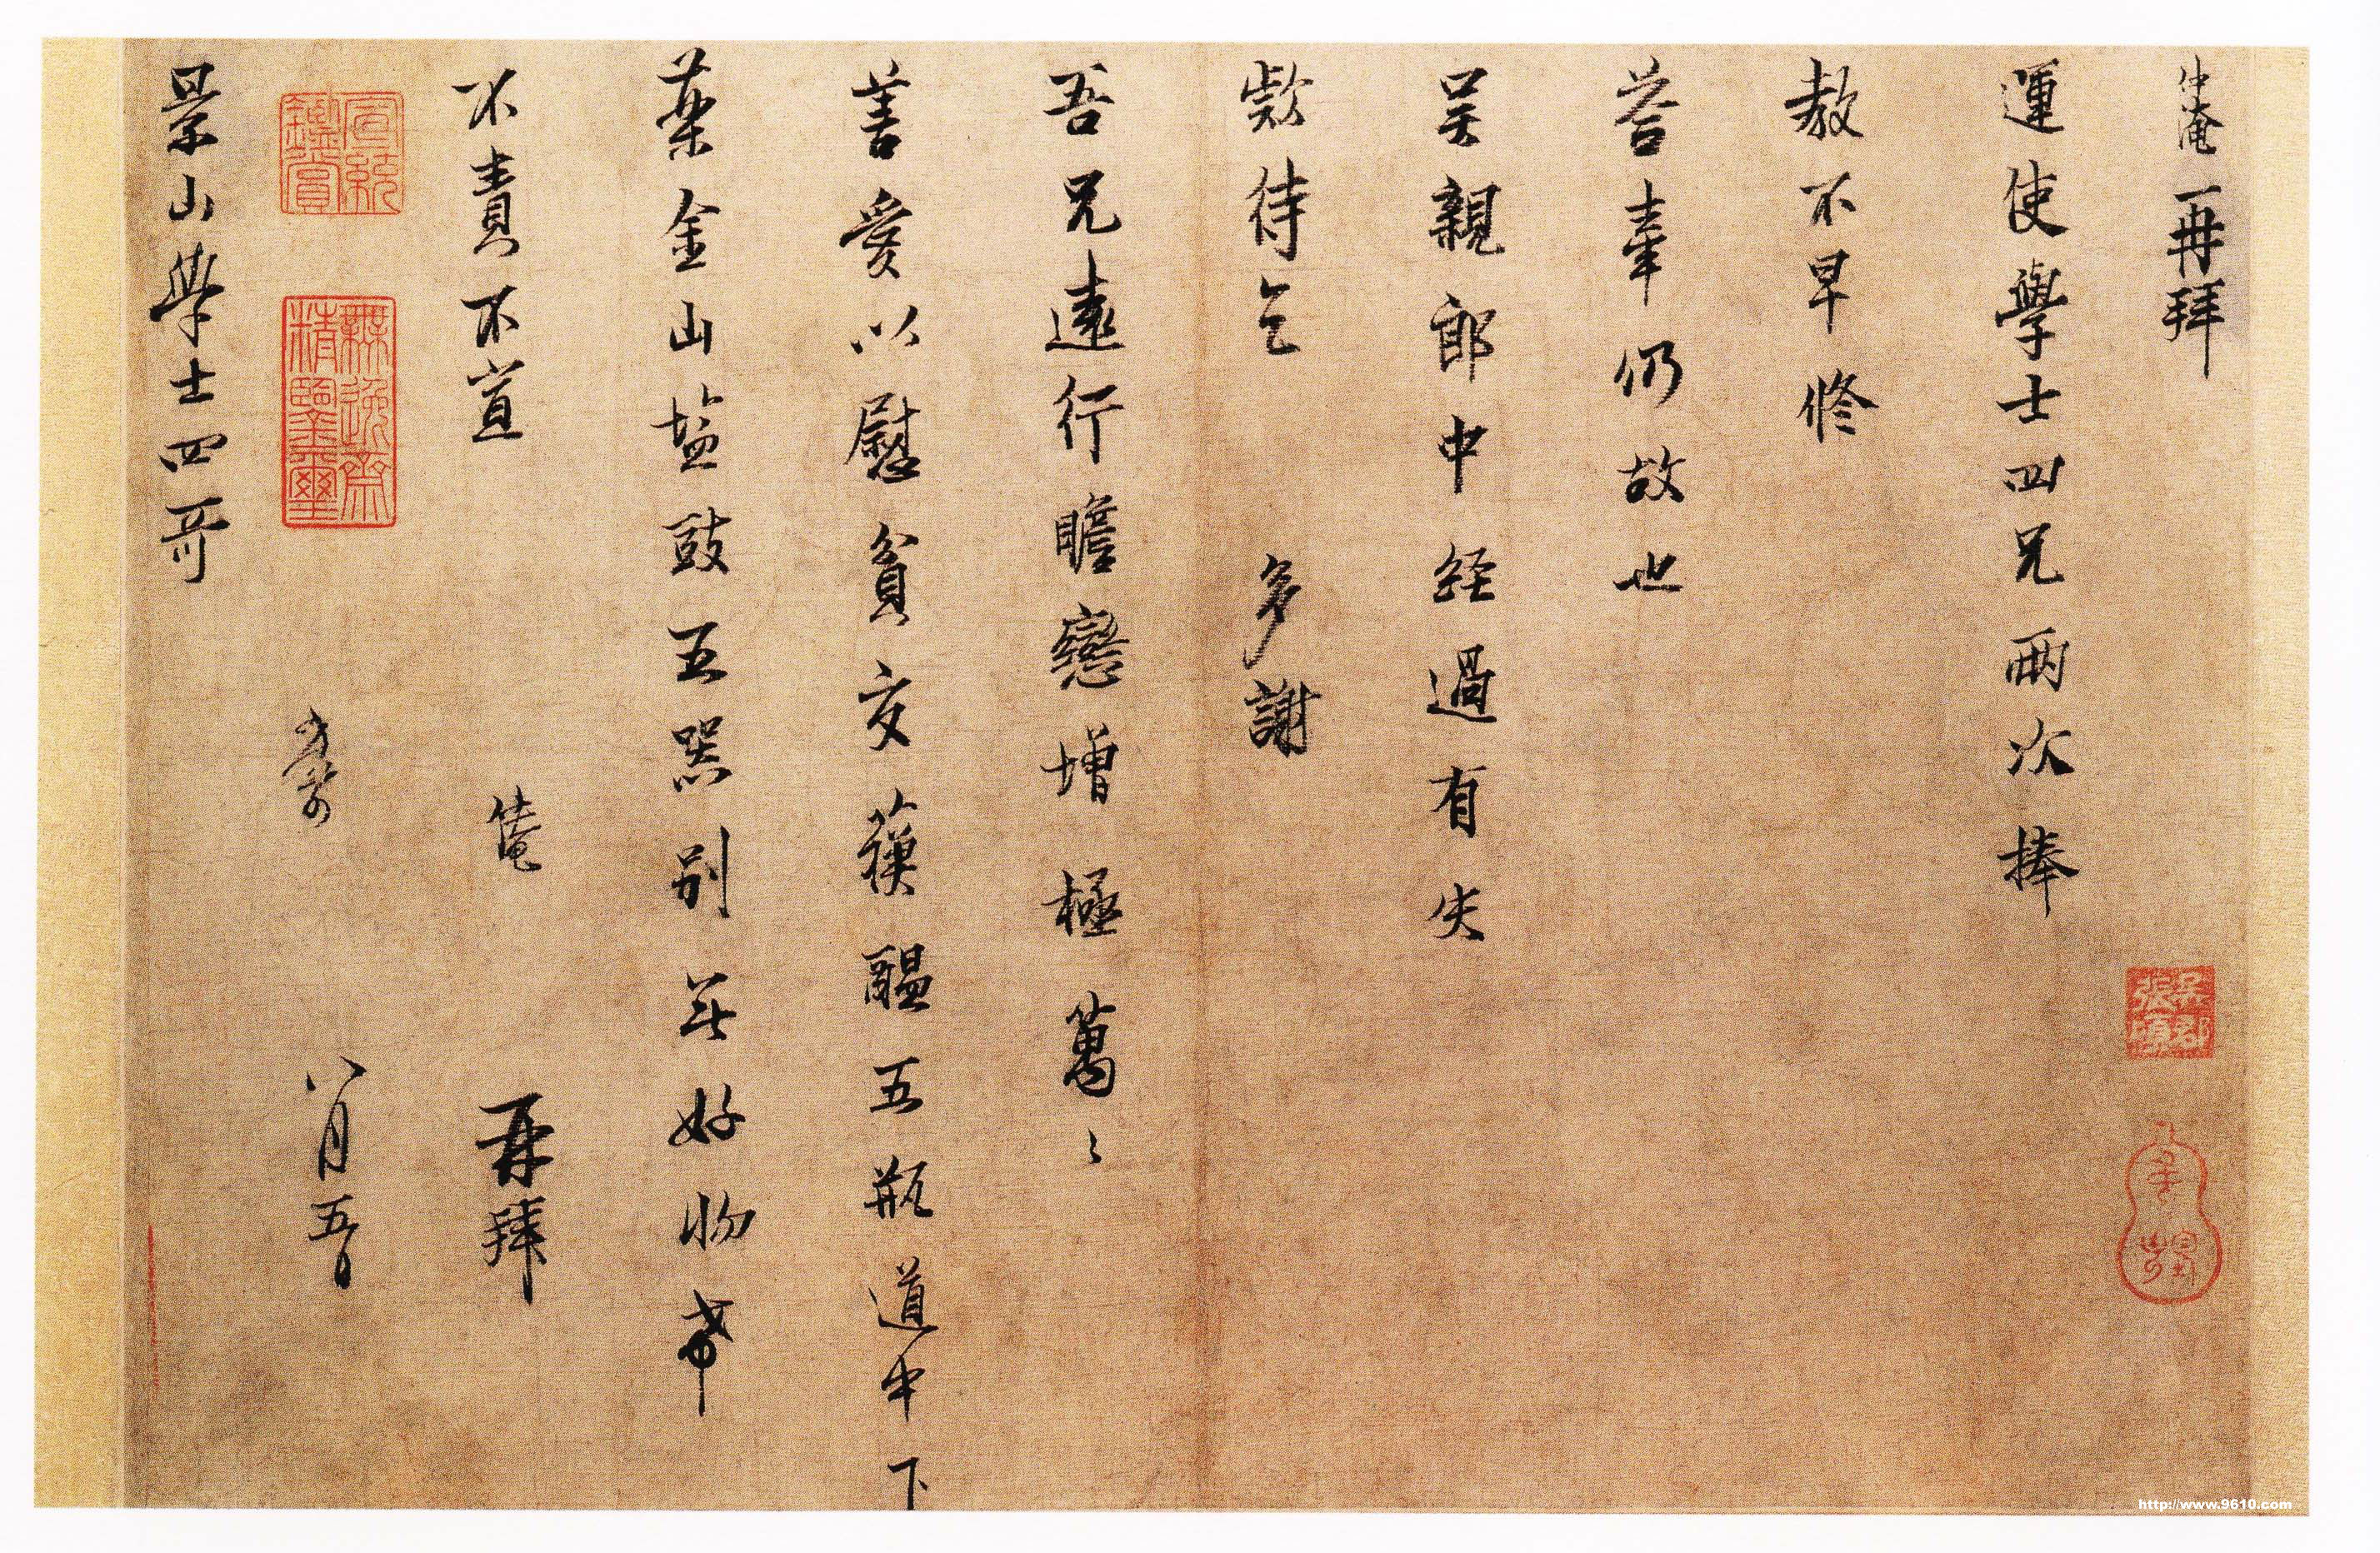 仲淹再拜
運使學士四兄兩次捧
教不早修
荅牽仍故也
吴親郎中経過有失
款待乞
多謝
吾兄遠行瞻戀增極萬〻
善愛以慰貧交蘓醖五瓶道中下
藥金山塩豉五器別無好物
不責不宣
仲淹
再拜
八月五日
景山學士四哥
宣統鑒賞
無逸齋精鑒璽
吳郡張
http://www.9610.com